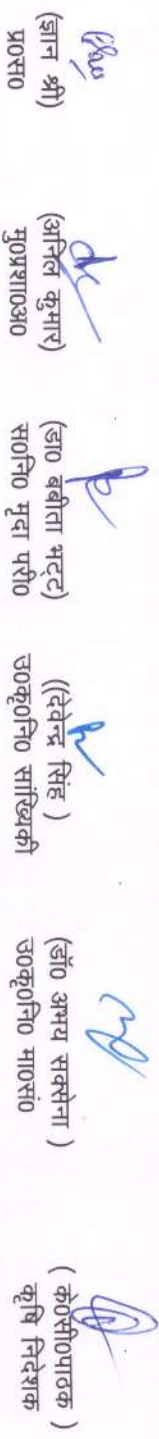 (ज्ञान श्री)
प्र०स०
(अनिल कुमार)
मु०प्रशा०अ०
(डा० बबीता भट्ट)
स०नि० मृदा परी०
((देवेन्द्र सिंह )
उ०कृ०नि० सांख्यिकी
(डॉ० अभय सक्सेना )
उ०कृ०नि० मा०सं०
( के०सी०पाठक )
कृषि निदेशक